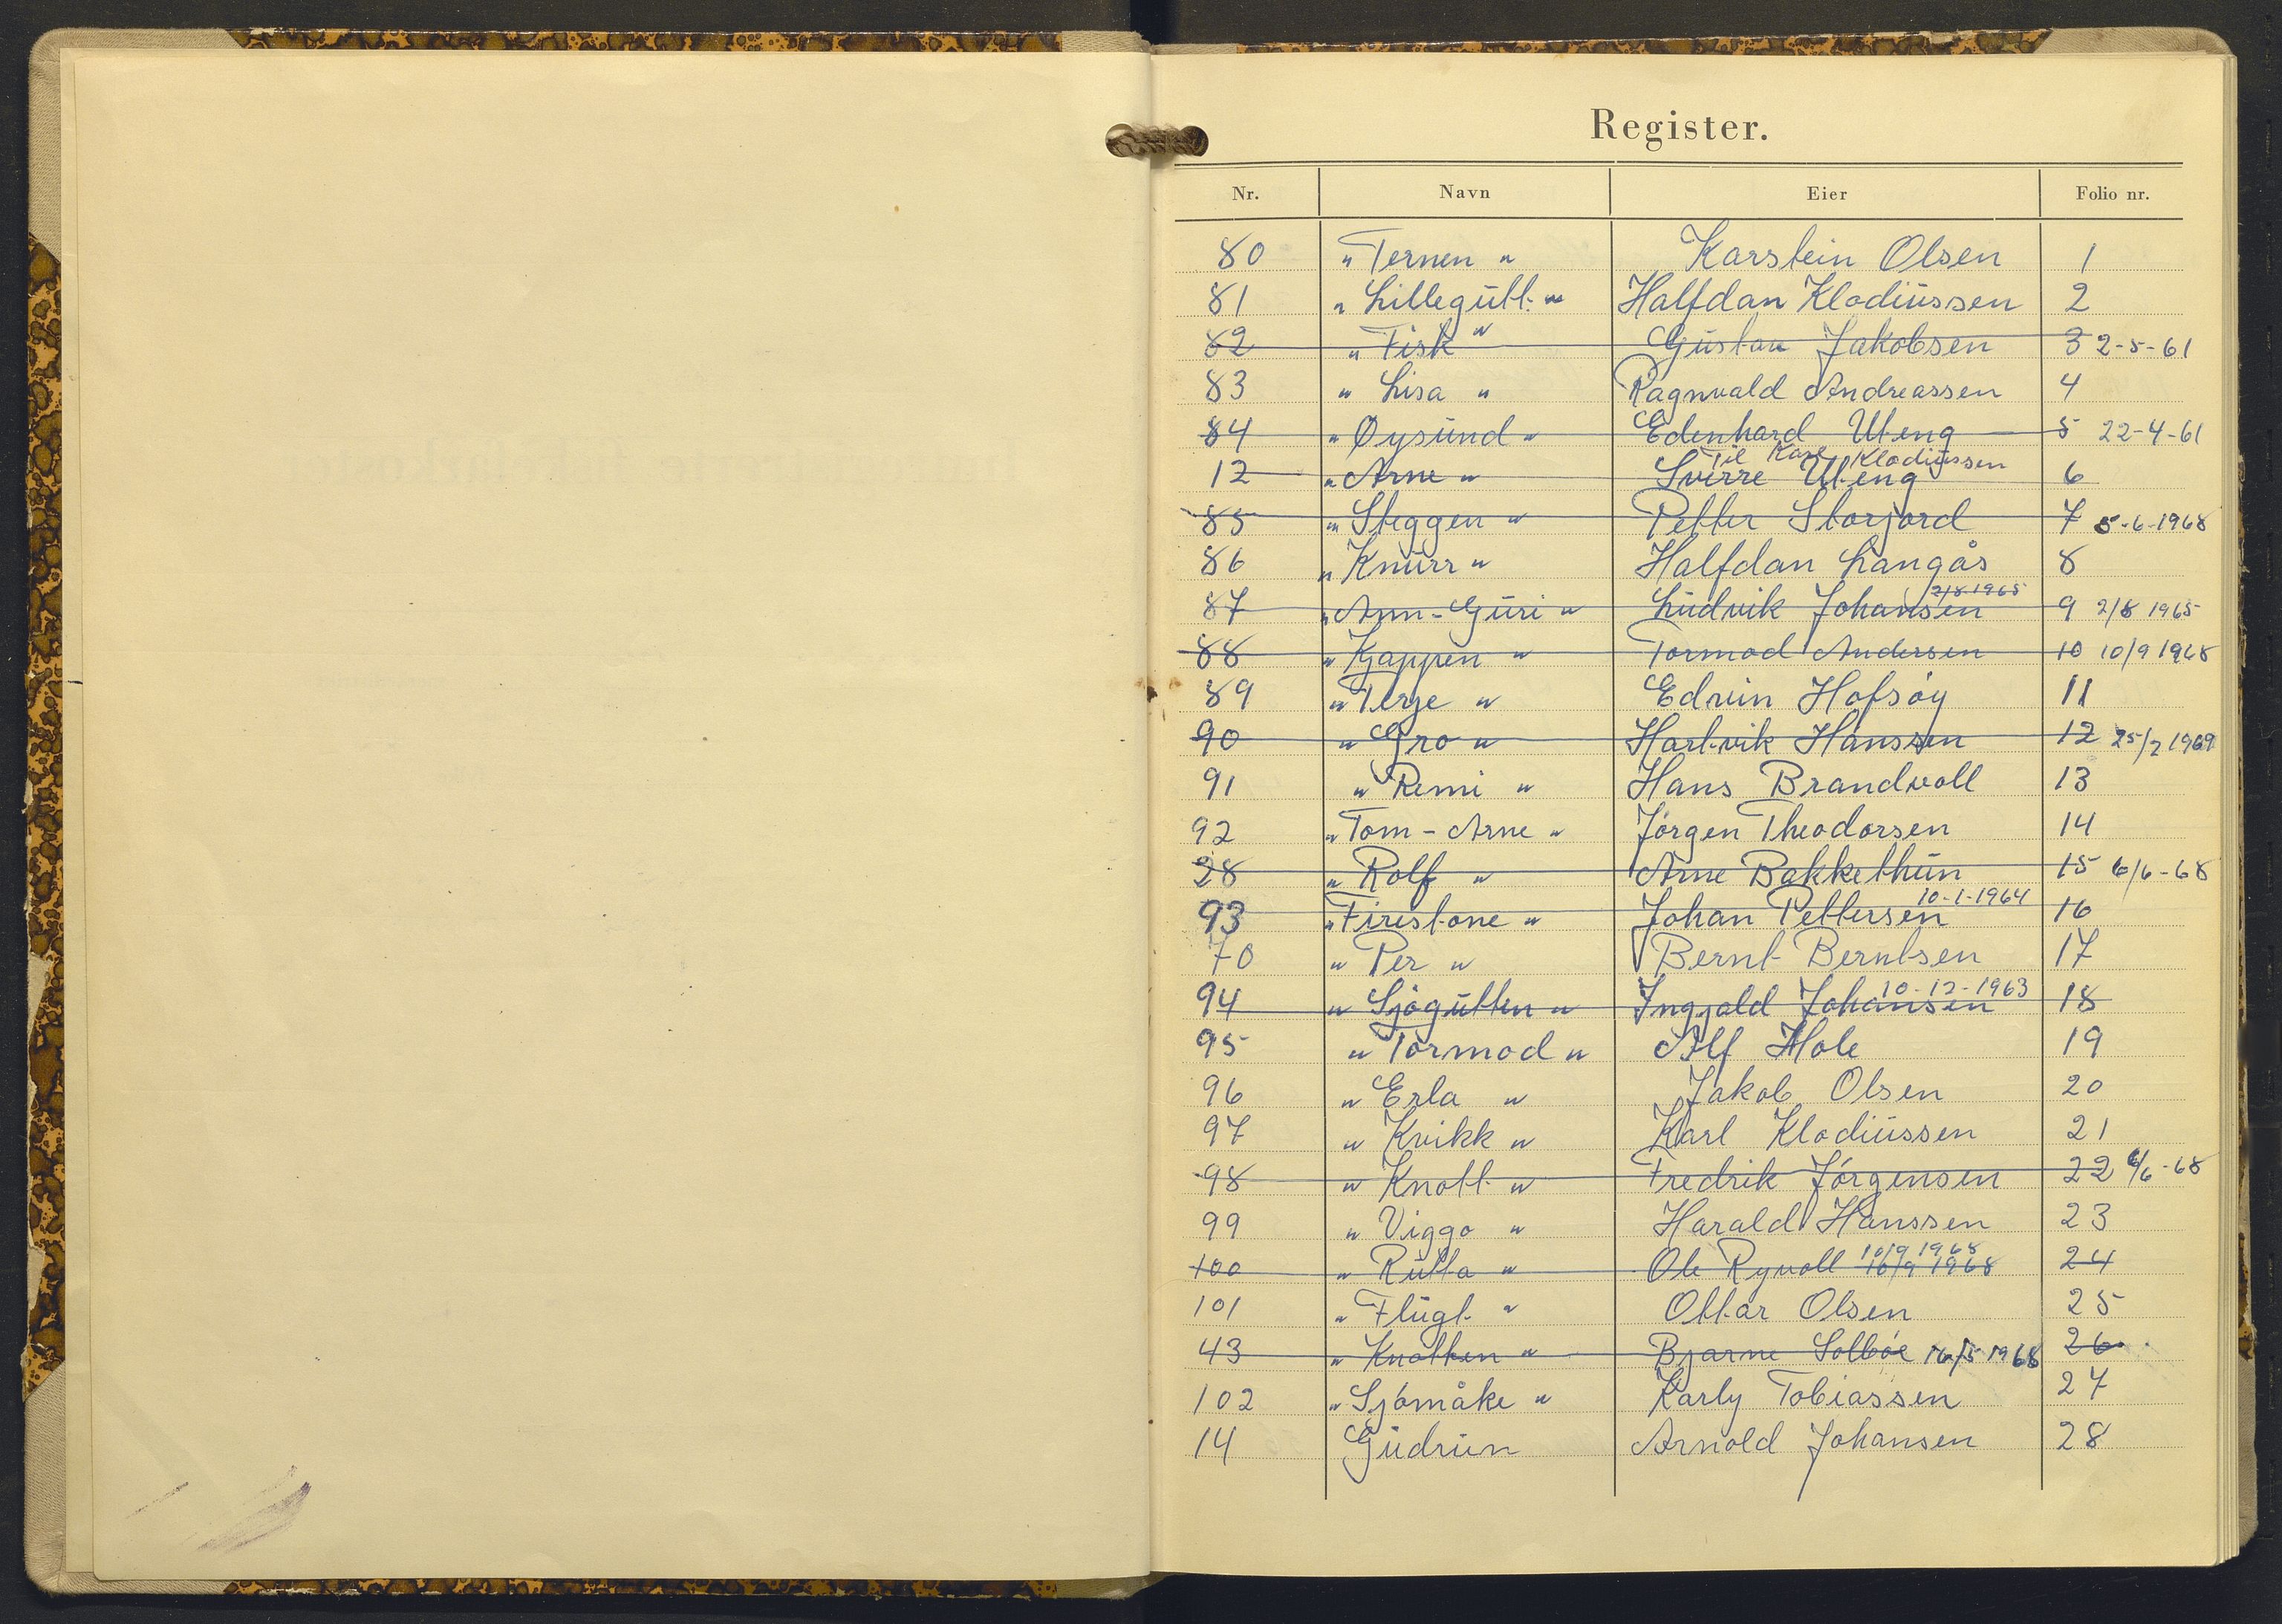 Register.
Nr. Navn Eier Folio nr.
80 "Ternen" Karstein Olsen 1
81 "Lillegutt" Halfdan Klodiussen 2
82 "Fisk" Gustav Jakobsen 3 2-5-61
83 "Lisa" Ragnvald Andreassen 4
84 "Øysund" Edenhard Uteng 5 22-4-61
Til Karl Klodiussen
12 "Arne" Svirre Uteng 6
85 "Steggen" Petter Storjord 7 5-6-1968
86 "Knurr" Halfdan Langås 8
2/8 1965
87 "Ann-Guri" Ludvik Johansen 9 2/8 1965
88 "Kjappen" Tormod Andersen 10 10/9 1968
89 "Terje" Edvin Hofsøy 11
90 "Gro" Hartvik Hanssen 12 25/2 1969
91 "Remi" Hans Brandvoll 13
92 "Tom-Arne" Jørgen Theodorsen 14
28 "Rolf" Arne Bakkethun 15 6/6-68
10-1-1964
93 "Firestone" Johan Pettersen 16
70 "Per" Bernt Berntsen 17
10-12-1963
94 "Sjøgutten" Ingjald Johansen 18
95 "Tormod" Alf Hole 19
96 "Erla" Jakob Olsen 20
97 "Kvikk" Karl Klodiussen 21
98 "Knott" Fredrik Jørgensen 22 6/6-68
99 "Viggo" Harald Hanssen 23
10/9 1968
100 "Rutta" Ole Ryvoll 10/9 1968 24
101 "Flugt" Ottar Olsen 25
43 "Knotten" Bjarne Solbøe 16/5 1968 26
102 "Sjømåke" Karly Tobiassen 27
14 Gudrun Arnold Johansen 28